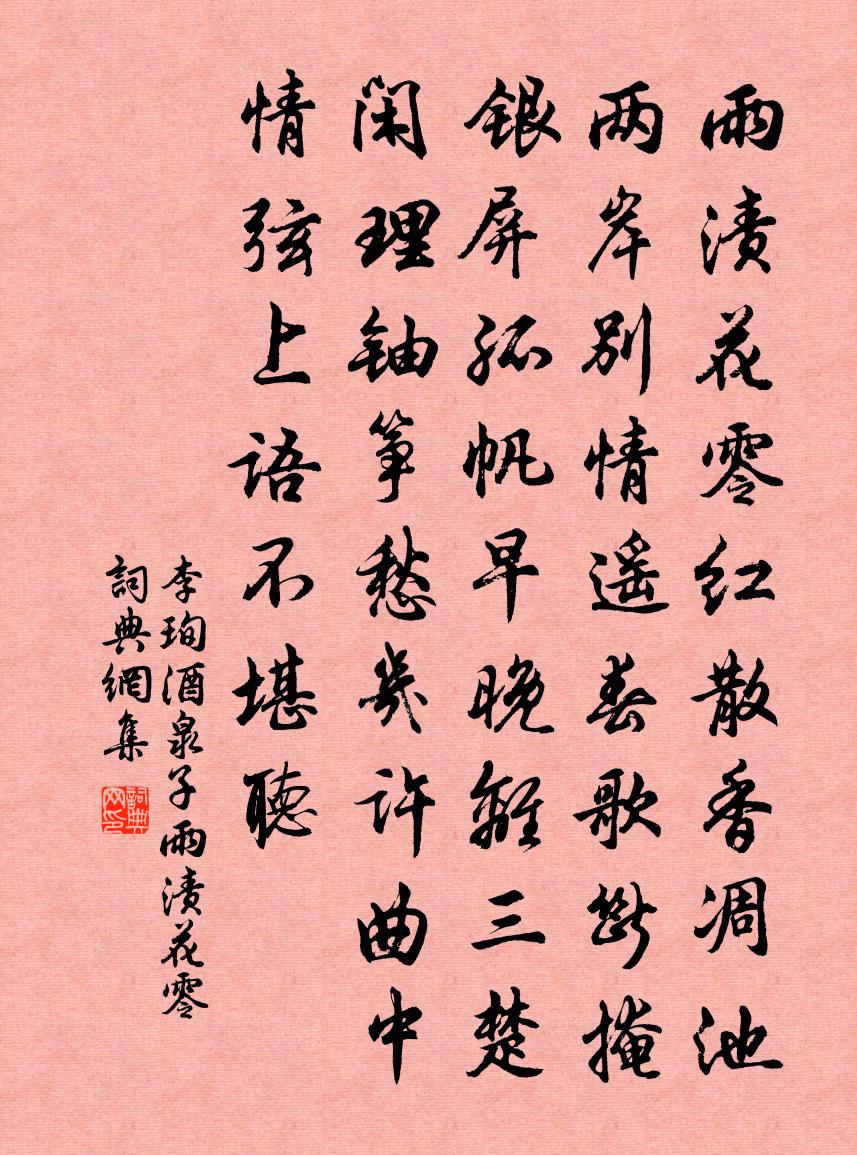 雨渍花零红散香凋池
两岸别情遥春歌断掩
银屏孤帆早晚離三楚
闲理钿筝愁幾许曲中
情弦上语不堪聴
李珣酒泉子雨渍花零
詞典網集
詞典网印